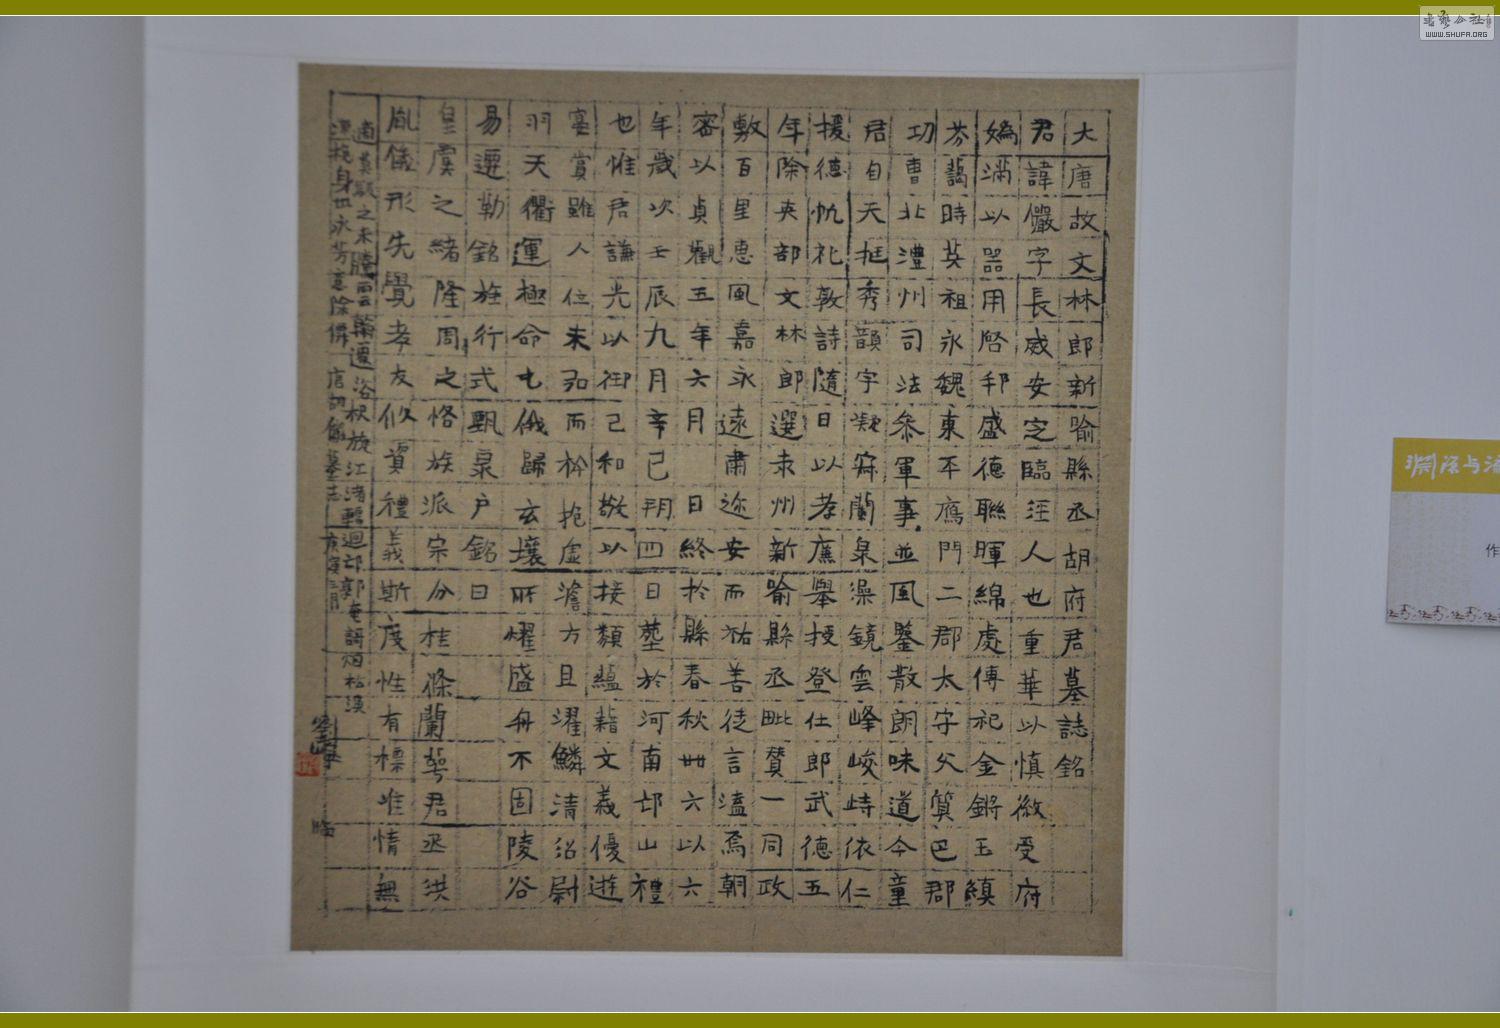 大唐故文林郎新喻縣丞胡府君墓誌銘
君諱儼字長威安定臨涇人也重華以慎徽受府
媯滿以器用啓邦盛德聯暉綿處傳祀金鏘玉鎮
芬藹時英祖永魏東平鴈門二郡太守父質巴郡
功曹北澧州司法叅軍事並風鑒散朗味道今童
君自天挺秀韻宇凝寂蘭泉澡鏡雲峰峻峙依仁
援德忱禮敦詩隨日以孝廉舉授登仕郎武德五
年除夾部文林郎選未州新喻縣丞毗贊一同政
敷百里惠風嘉永遠肅迩安而祐善徒言溘焉朝
容以貞觀五年六月日終於縣春秋卌六以六
年歲次壬辰九月辛巳朔四日塟於河南邙山禮
也惟君謙光以御己和敬以接類蘊藉文義優遊
宴賞雖人位未弘而衿抱虛澹方且濯鱗清沼尉
羽天衢運極命乇俄歸玄壤所懼盛舟不固陵谷
易遷勒銘旌行式甄泉户銘曰
皇虞之緒隆周之恪族派宗分桂條蘭萼君丞洪
胤儀形先覺孝友攸資禮義斯度性有標准情無
適莫 之未騰雲葉遷浴 旋江渚 迴邙郭 松溪
身世永芳 除 唐胡儼墓志
劉 臨
書藝公社
WWW.SHUFA.ORG
作